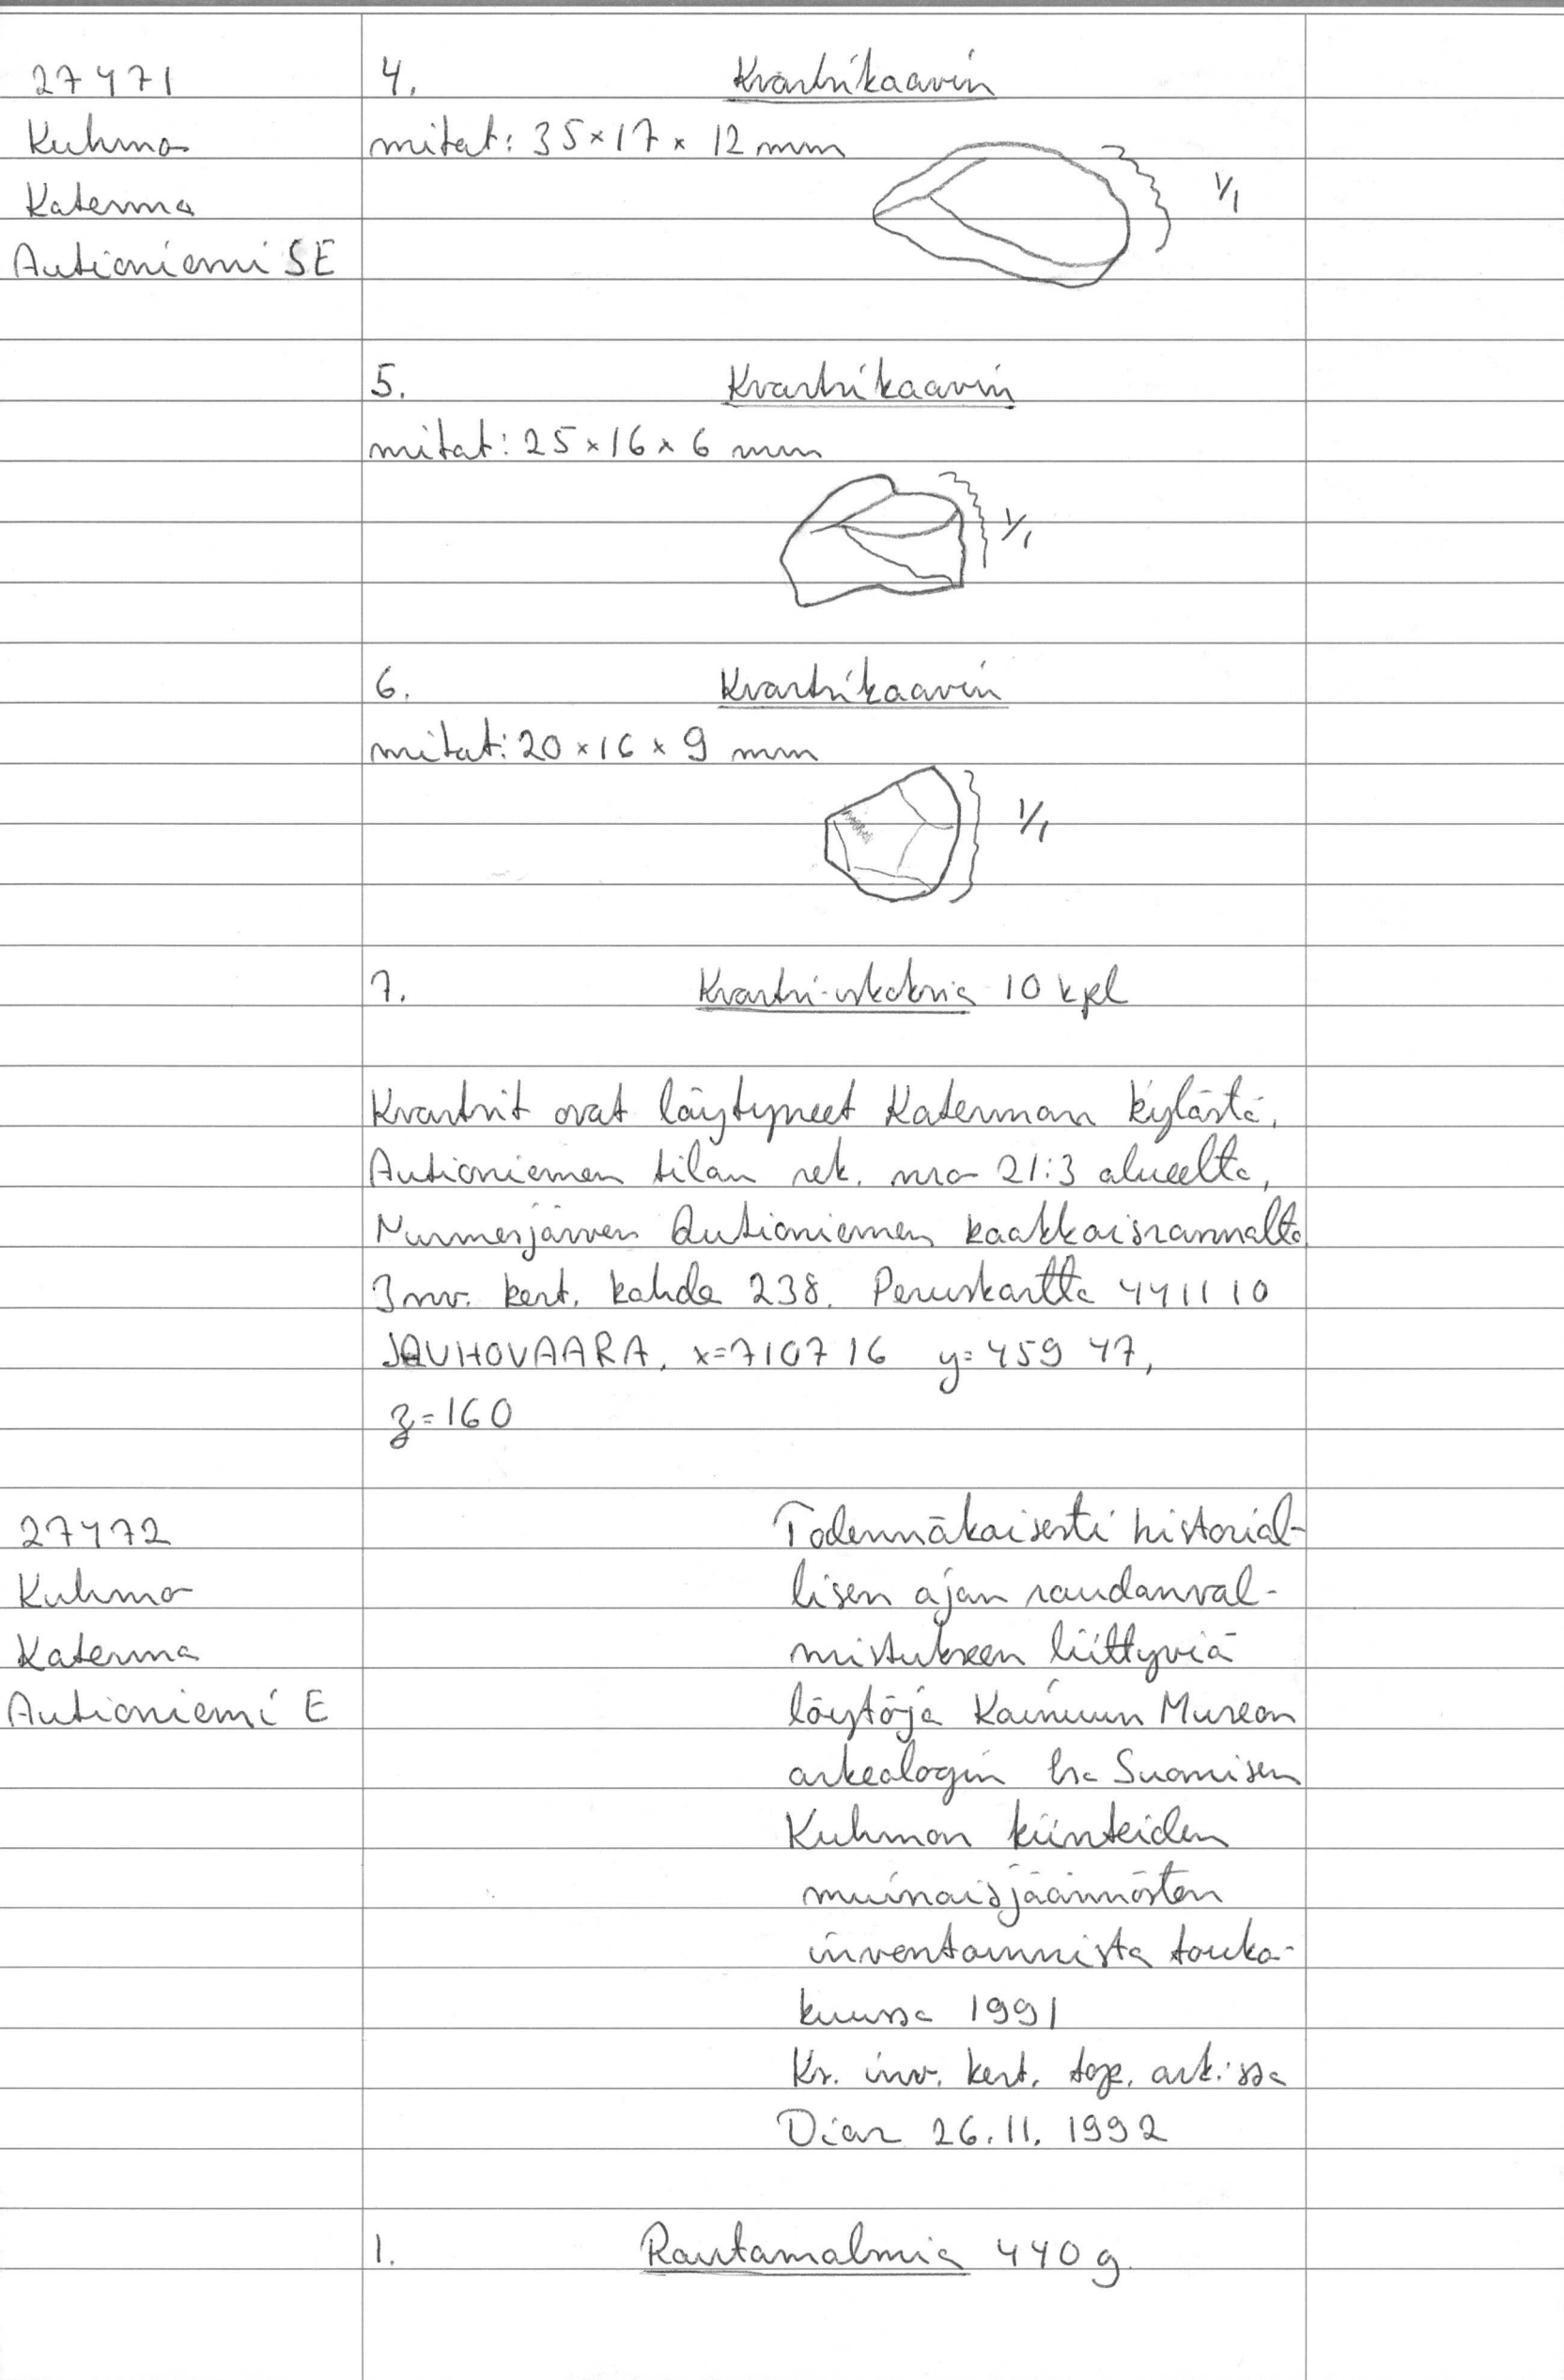 27471
Kuhmo
Katerma
Autioniemi SE
4. Kvartsikaavin
mitat: 35 × 17 × 12 mm
1/1
5. Kvartsikaavin
mitat: 25 × 16 × 6 mm
1/1
6. Kvartsikaavin
mitat: 20 × 16 × 9 mm
1/1
7. Kvartsi-iskoksia 10 kpl
Kvartsit ovat löytyneet Katerman kylästä,
Autioniemen tilan rek. nro 21:3 alueelta,
Nurmesjärven Autioniemen kaakkoisrannalta.
Inv. kert. kohde 238. Peruskartta 4411 10
JAUHOVAARA, x=7107 16 y=459 47,
z=160
27472
Kuhmo
Katerma
Autioniemi E
Todennäköisesti historial-
lisen ajan raudanval-
mistukseen liittyviä
löytöjä Kainuun Museon
arkeologin Esa Suomisen
Kuhmon kiinteiden
muinaisjäännösten
inventoinnista touko-
kuussa 1991
Ks. inv. kert. top. ark:ssa
Diar 26.11.1992
1. Rautamalmia 440 g.